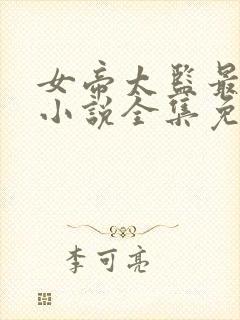 女帝太监最
小说全集免
李可亮